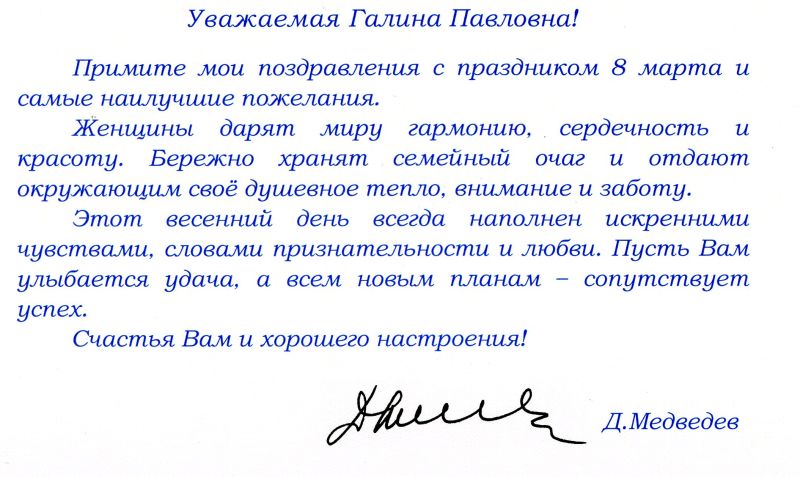 Уважаемая Галина Павловна!
Примите мои поздравления с праздником 8 марта и
самые наилучшие пожелания.
Женщины дарят миру гармонию, сердечность и
красоту. Бережно хранят семейный очаг и отдают
окружающим своё душевное тепло, внимание и заботу.
Этот весенний день всегда наполнен искренними
чувствами, словами признательности и любви. Пусть Вам
улыбается удача, а всем новым планам – сопутствует
успех.
Счастья Вам и хорошего настроения!
Д.Медведев